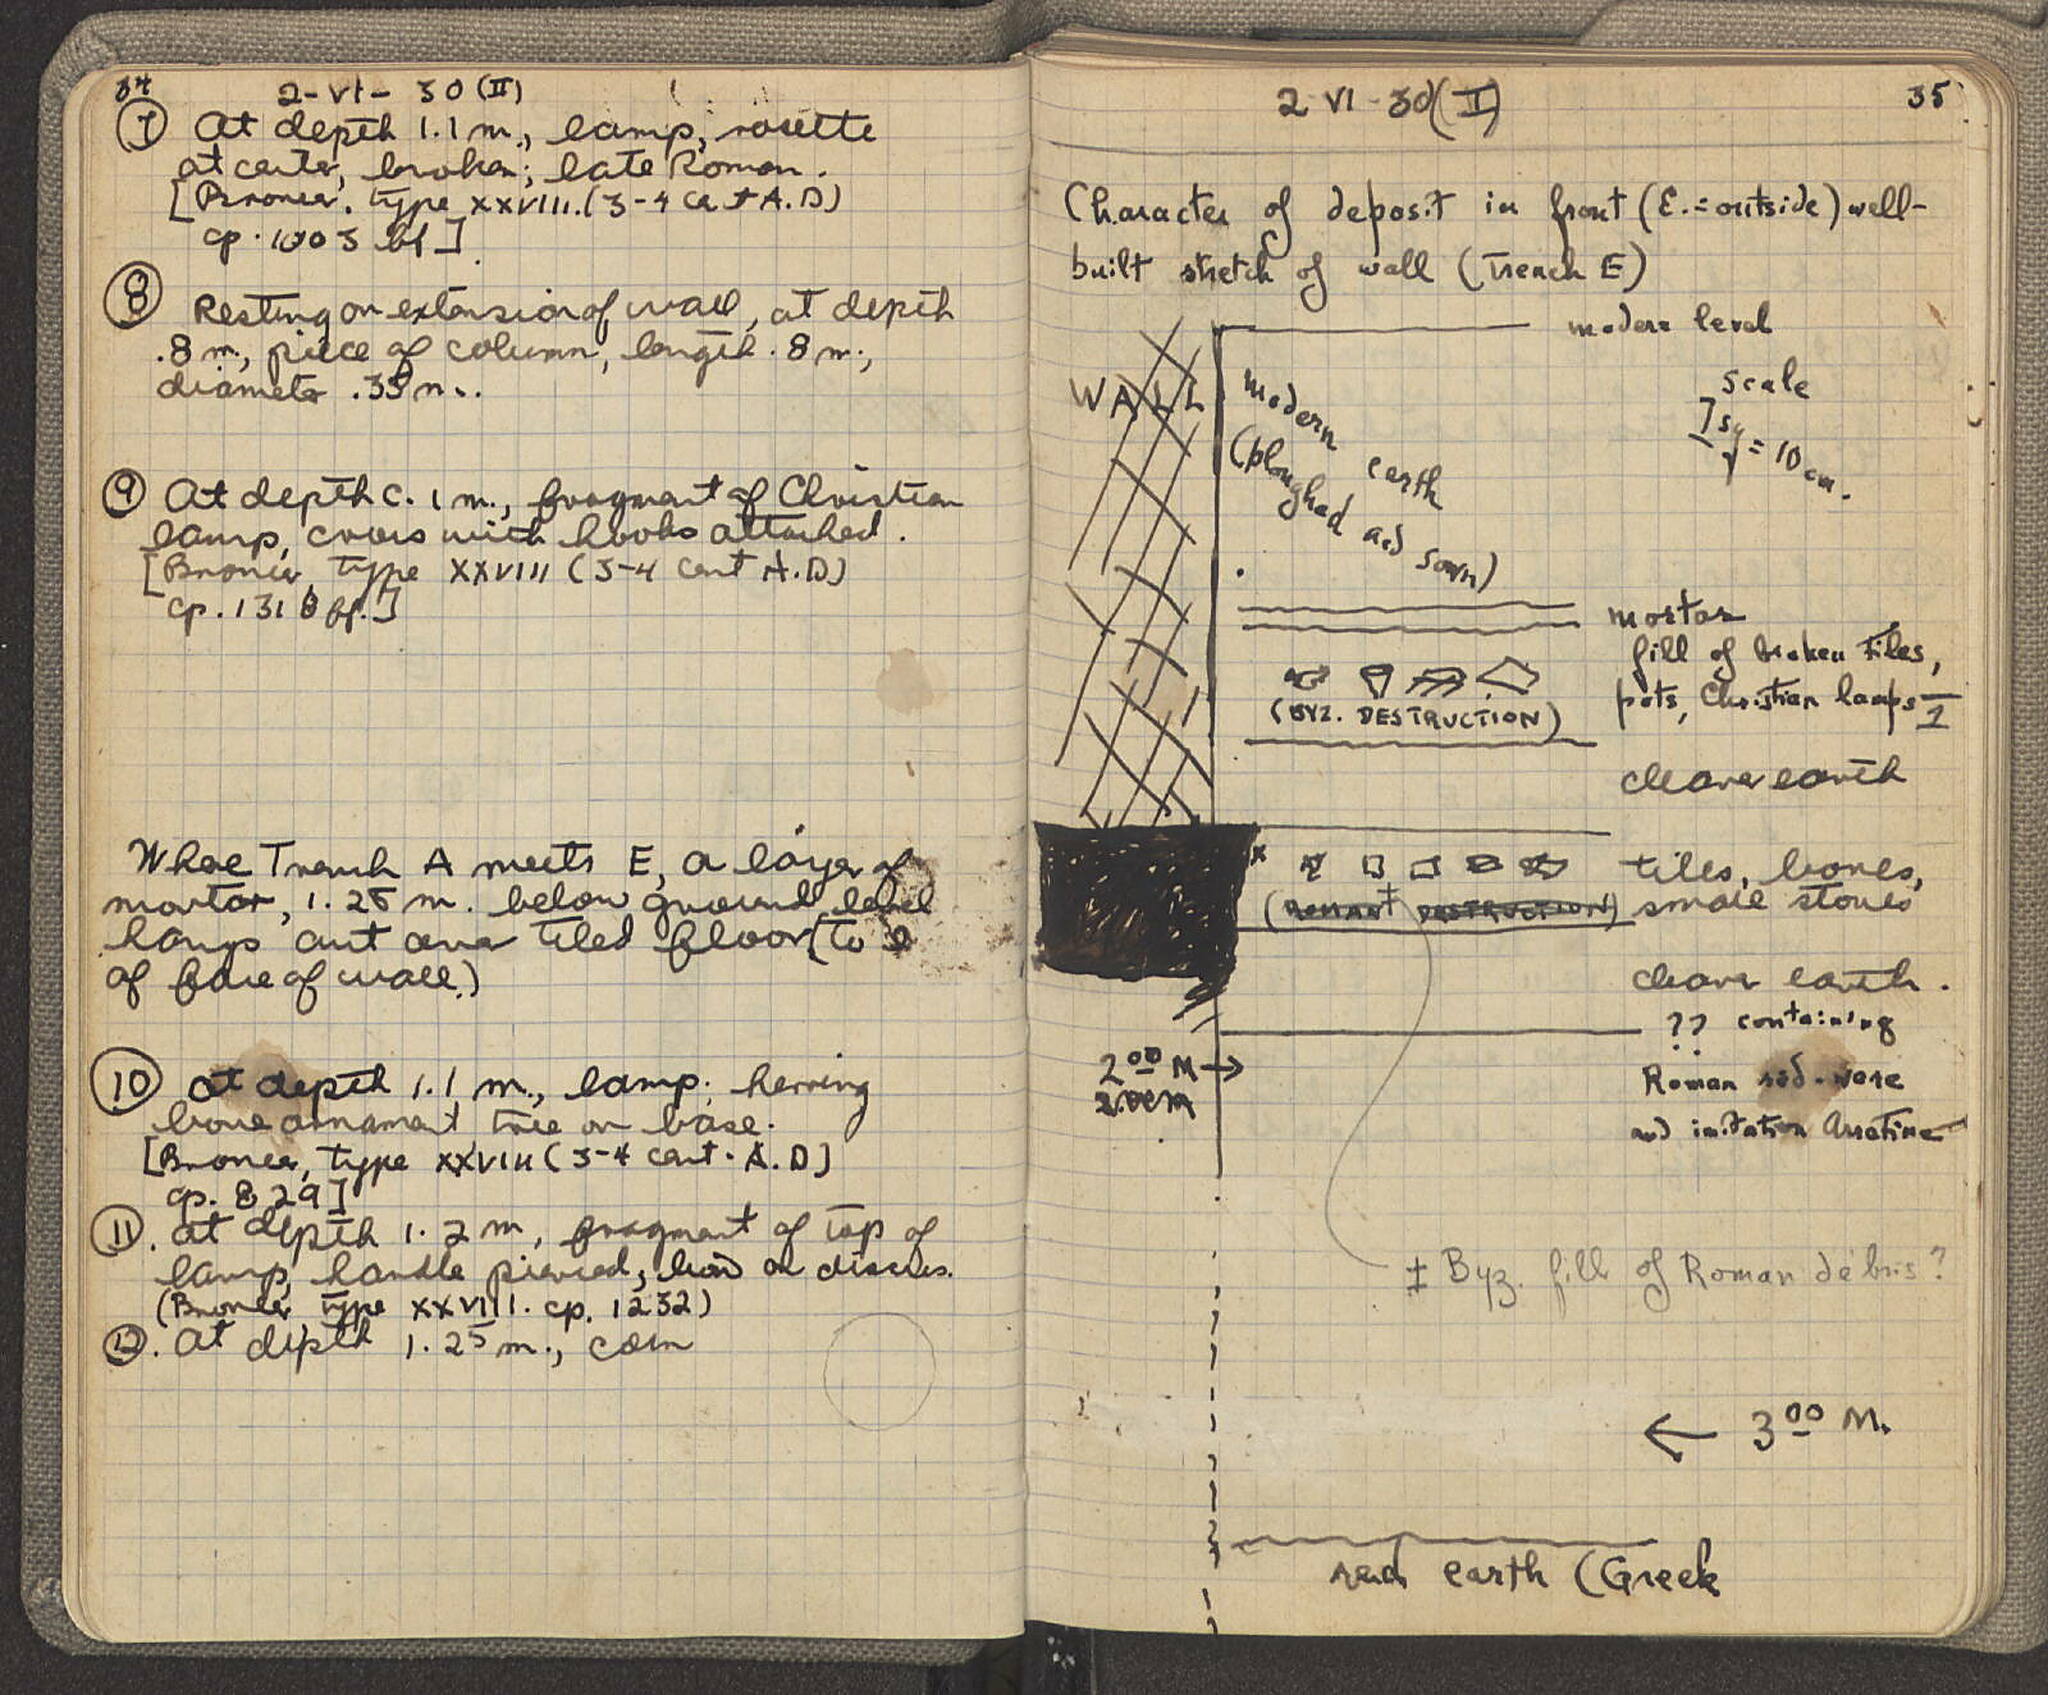 34
2-VI-30 (II)
⑦ At depth 1.1 m., lamp, rosette
at center, broken; late Roman.
[Broneer, type XXVIII. (3-4 cent A.D)
cp. 1003 bf]
⑧ Resting on extension of wall, at depth
.8 m., piece of column, length .8 m.,
diameter .35 m..
⑨ At depth c. 1 m., fragment of Christian
lamp, cross with hooks attached.
[Broneer, type XXVIII (3-4 cent A.D)
cp. 1318 bf.]
Where Trench A meets E, a layer of
mortar, 1.25 m. below ground level
hangs out over tiled floor (to
of face of wall.)
⑩ at depth 1.1 m., lamp; herring
bone ornament tree on base.
[Broneer, type XXVIII (3-4 cent. A.D)
cp. 829]
⑪. at depth 1.2 m, fragment of top of
lamp, handle pierced, lion on discus.
(Broneer type XXVIII. cp. 1232)
⑫. At depth 1.25 m., coin
2 VI-30 (I)
35
Character of deposit in front (E.=outside) well-
built stretch of wall (Trench E)
modern level
WALL
scale
1 sq = 10 cm.
modern earth
(ploughed and sown)
mortar
fill of broken tiles,
pots, Christian lamps
(BYZ. DESTRUCTION)
cleaner earth
tiles, bones,
(ROMAN‡ DESTRUCTION) small stones
cleaner earth.
?? containing
2 00 M →
Roman red-ware
2.00 M
and imitation Arretine
‡ Byz. fill of Roman debris?
← 3 00 M.
red earth (Greek